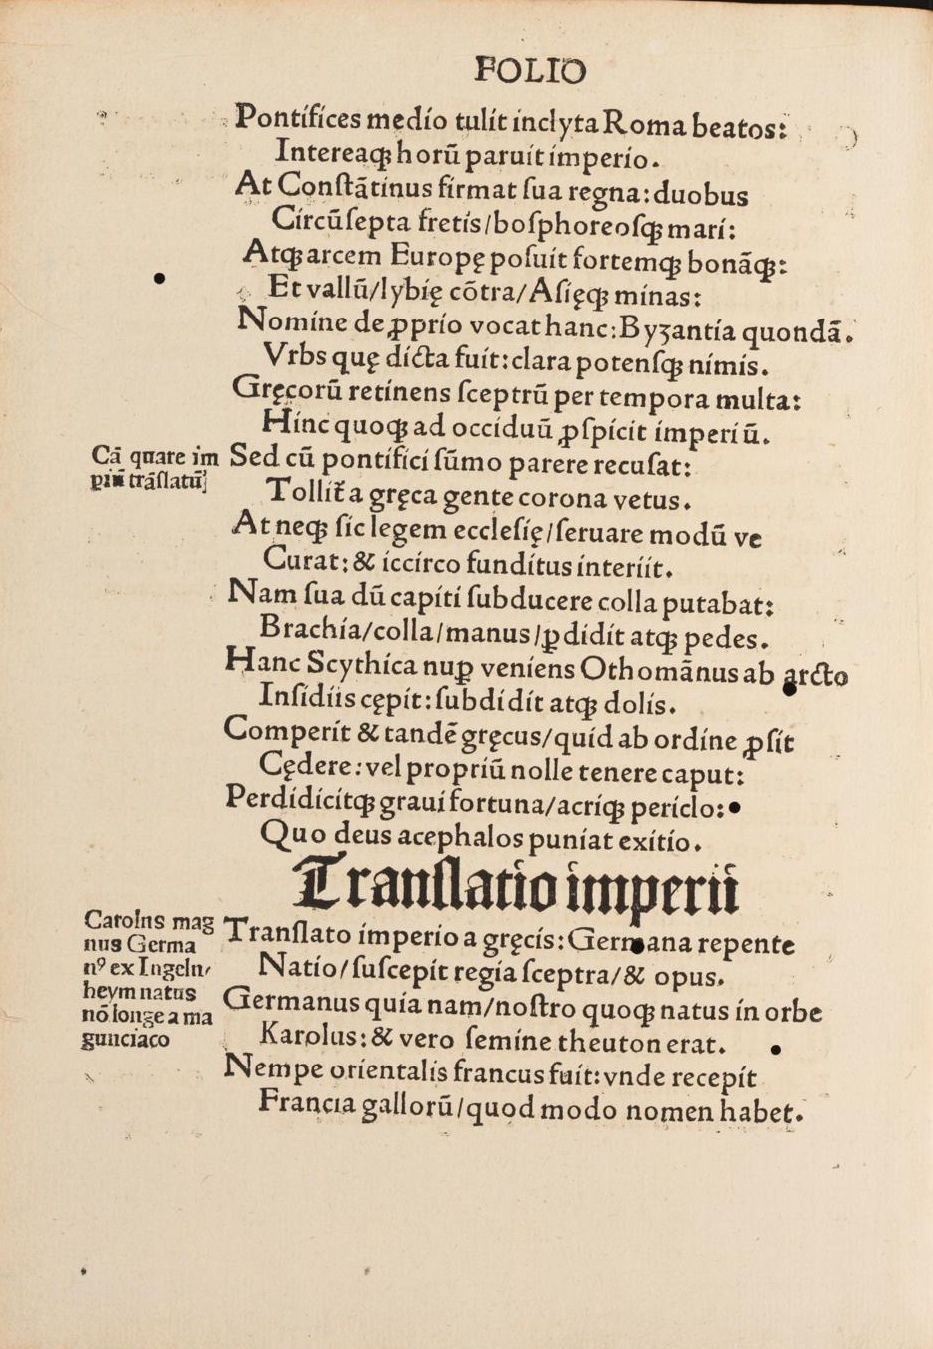 FOLIO
Pontifices medio tulit inclyta Roma beatos:
Intereaqꝫ horū paruit imperio.
At Conſtātinus firmat ſua regna: duobus
Circūſepta fretis/boſphoreoſqꝫ mari:
Atqꝫ arcem Europę poſuit fortemqꝫ bonāqꝫ:
Et vallū/lybię cōtra/Aſięqꝫ minas:
Nomine de ꝓprio vocat hanc: Byʒantia quondā.
Vrbs quę dicta fuit: clara potenſqꝫ nimis.
Gręcorū retinens ſceptrū per tempora multa:
Hinc quoqꝫ ad occiduū ꝓſpicit imperiū.
Cā quare im
piū trāſlatū
Sed cū pontifici ſūmo parere recuſat:
Tollit̃ a gręca gente corona vetus.
At neqꝫ ſic legem eccleſię/ſeruare modū ve
Curat: & iccirco funditus interiit.
Nam ſua dū capiti ſubducere colla putabat:
Brachia/colla/manus/ꝑdidit atqꝫ pedes.
Hanc Scythica nuꝑ veniens Othomānus ab arcto
Inſidiis cępit: ſubdidit atqꝫ dolis.
Comperit & tandē gręcus/quid ab ordine ꝓſit
Cędere: vel propriū nolle tenere caput:
Perdidicitqꝫ graui fortuna/acriqꝫ periclo:
Quo deus acephalos puniat exitio.
Tranſlatio imperii
Carolus mag
nus Germa
nꝰ ex Ingeln/
heym natus
nō longe a ma
gunciaco
Tranſlato imperio a gręcis: Germana repente
Natio/ſuſcepit regia ſceptra/& opus.
Germanus quia nam/noſtro quoqꝫ natus in orbe
Karolus: & vero ſemine theuton erat.
Nempe orientalis francus fuit: vnde recepit
Francia gallorū/quod modo nomen habet.